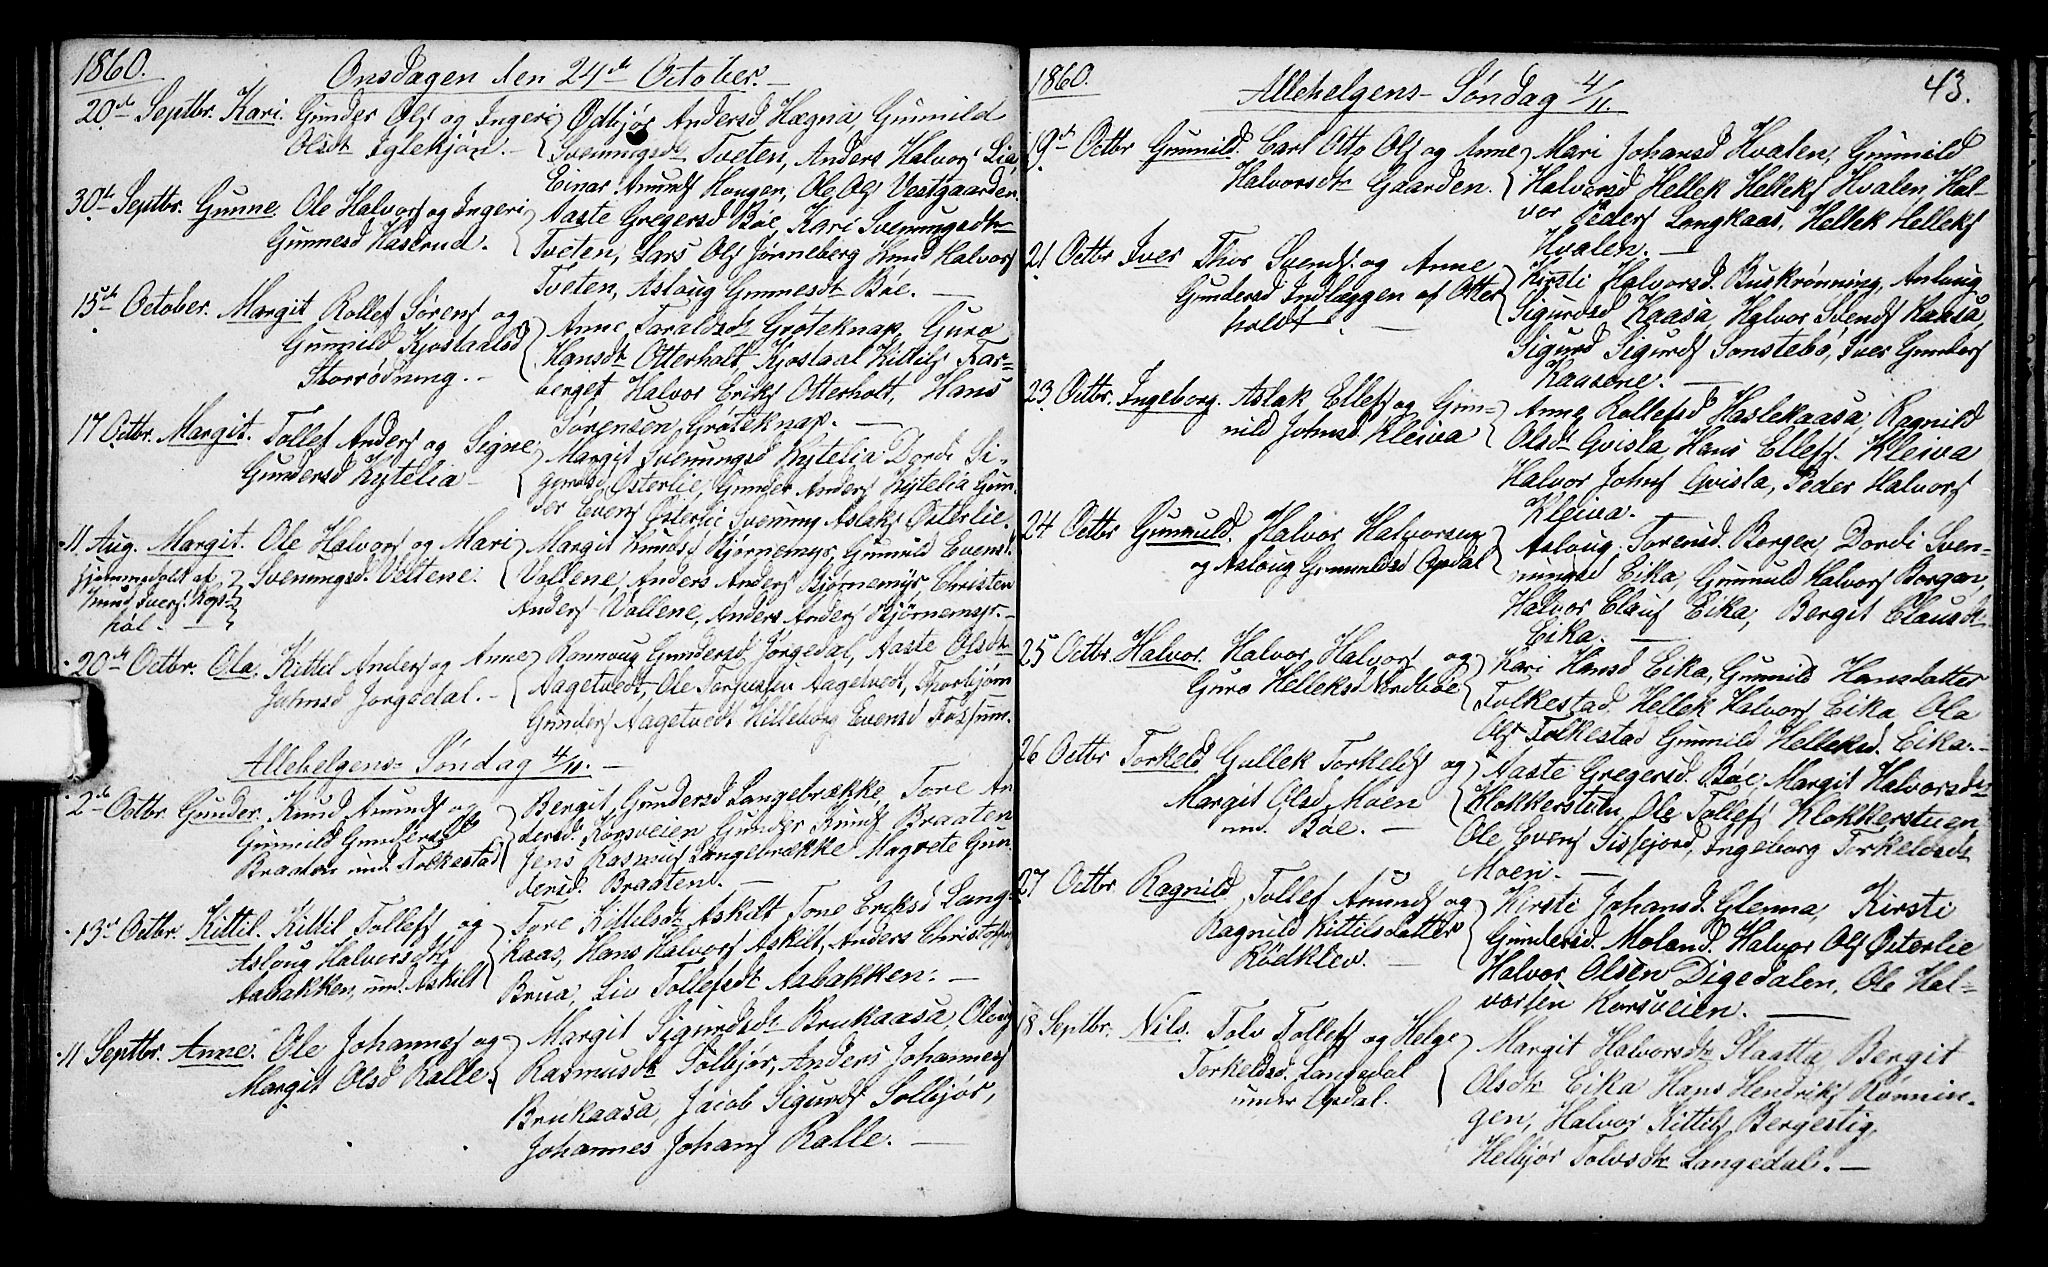 1860.
Onsdagen den 24de October.
20de Septbr. Kari. Gunder Ols og Ingeri
Olsdtr Iglekjøn.
Ødbjør Andersd Hægna, Gunnild
Svenningsdtr Tveten, Anders Halvors Lia
Einar Amunds Haugen, Ole Ols Vestgaarden.
30te Septbr. Gunne. Ole Halvors og Ingeri
Gunnesd Hastrud.
Aaste Gregersd Bøe, Kari Svenningsdtr
Tveten, Lars Ols Jønneberg Knud Halvors
Tveten, Asloug Gunnesdtr Bøe.
15de October. Margit Rollef Sørens og
Gunnild Kjostaalsd
Storrødning.
Anne Taraldsdtr Grøteknap, Guro
Hansdtr Otterholt, Kjostaal Kittils Far-
berget Halvor Eriks Otterholt, Hans
Sørensen Grøteknap.
17 Octbr. Margit. Tollef Anders og Signe
Gundersd Lytelia
Margit Svenningsd Lytelia Dordi Si-
gursd Østerlie, Gunder Anders Lytelia Gun-
der Evens Østerlie Svenning Aslaks Østerlie.
11 Aug. Margit. Ole Halvors og Mari
Svenningsd. Valtene.
hjemmedøbt af
Knud Ivers
Margit Knudsd Bjørnemyr, Gunnild Evensd
Vallene, Anders Anders Bjørnemyr, Christen
Anders Vallene, Anders Anders Bjørnemyr.
20de Octbr. Ola. Kittil Anders og Anne
Johnsd Jørgedal.
Rannoug Gundersd Jørgedal, Aaste Olsdtr
Aagetvedt, Ole Torjussen Aagetvedt, Thorbjørn
Gunders Aagetvedt Killeborg Evensd Fossum.
Allehelgens Søndag 4/11.
2de Octbr. Gunder. Knud Amunds og
Gunnild Gundersdtr
Braaten und. Folkestad
Bergit Gundersd Langebrække, Tore An
dersd. Korsveien Gunder Knuds Braaten
Jens Rasmus Langebrække Magrete Gun
dersd. Braaten.
13de Octbr. Kittil. Kittil Tollefs og
Asloug Halvorsdtr
Aabakken, und. Askilt
Tore Kittilsdtr Askilt Tone Eriksd Lang-
kaas, Hans Halvors Askilt, Anders Christophers
Brua, Liv Tollefsdtr Aabakken.
11 Septbr. Anne. Ole Johannes og
Margit Olsd Ralle.
Margit Sigurdsdtr Brukaasa, Oloug
Rasmusdtr Solbjør, Anders Johannes
Brukaasa, Jacob Sigurds Solbjør,
Johannes Johans Ralle.
1860.
43.
Allehelgens Søndag 4/11.
19de Octbr Gunnild. Carl Otto Ols og Anne
Halvorsdtr Gaarden.
Mari Johansd Hvalen, Gunnild
Halvorsd Hellek Helleks Hvalen Hal-
vor Peders Langkaas, Hellek Helleks
Hvalen.
21 Octbr Iver Thor Svends. og Anne
Gundersd Indlæggen af Otter
holdt.
Kirsti Halvorsd. Buskrønning, Anloug
Sigurdsd Kaasa, Halvor Svends Kaasa,
Sigurd Sigurds Sonstebø, Iver Gunders
Kaasene.
23 Octbr. Ingeborg. Aslak Ellefs og Gun-
nild Johnsd Kleiva
Anne Rollefsd Haslekaasa, Ragnild
Olsdtr Gvisla Hans Ellefs. Kleiva
Halvor Johns Gvisla, Peder Halvors
Kleiva.
24 Octbr Gunnuld. Halvor Halvorsen
og Asloug Gunnuldsd Opdal
Asloug Torensd. Bergen, Dordi Sven-
ningsd Eika, Gunnuld Halvors Borgan,
Halvor Claus Eika, Bergit Clausdtr
Eika.
25 Octbr. Halvor. Halvor Halvors og
Guro Helleksd Nordbøe
Kari Hansd Eika, Gunnild Hansdatter
Folkestad, Hellek Halvors Eika Ola
Ols Folkestad Gunnild Helleksd. Eika.
26 Octbr Torkeld Gullek Torkelds og
Margit Olsd Moen
und. Bøe.
Aaste Gregersd. Bøe, Margit Halvorsdtr
Klokkerstuen Ole Tollefs Klokkerstuen
Ole Evens Sisjord, Ingeborg Torkeldsdtr
Moen.
27 Octbr Ragnild Tollef Amunds og
Ragnild Kittilsdatter
Rødklev.
Kirsti Johansd. Glenna, Kirsti
Gundersd. Moland. Halvor Ols Østerlie
Halvor Olsen Digedalen, Ole Hal-
vorsen Korsveien.
18 Septbr. Nils. Tolv Tollefs og Helge
Torkeldsd. Langedal
under Opdal.
Margit Halvorsdtr Slaatta, Bergit
Olsdtr Eika Hans Hendriks Rønnin-
gen, Halvor Kittils Bergestig,
Helbjør Tolvsdtr Langedal.